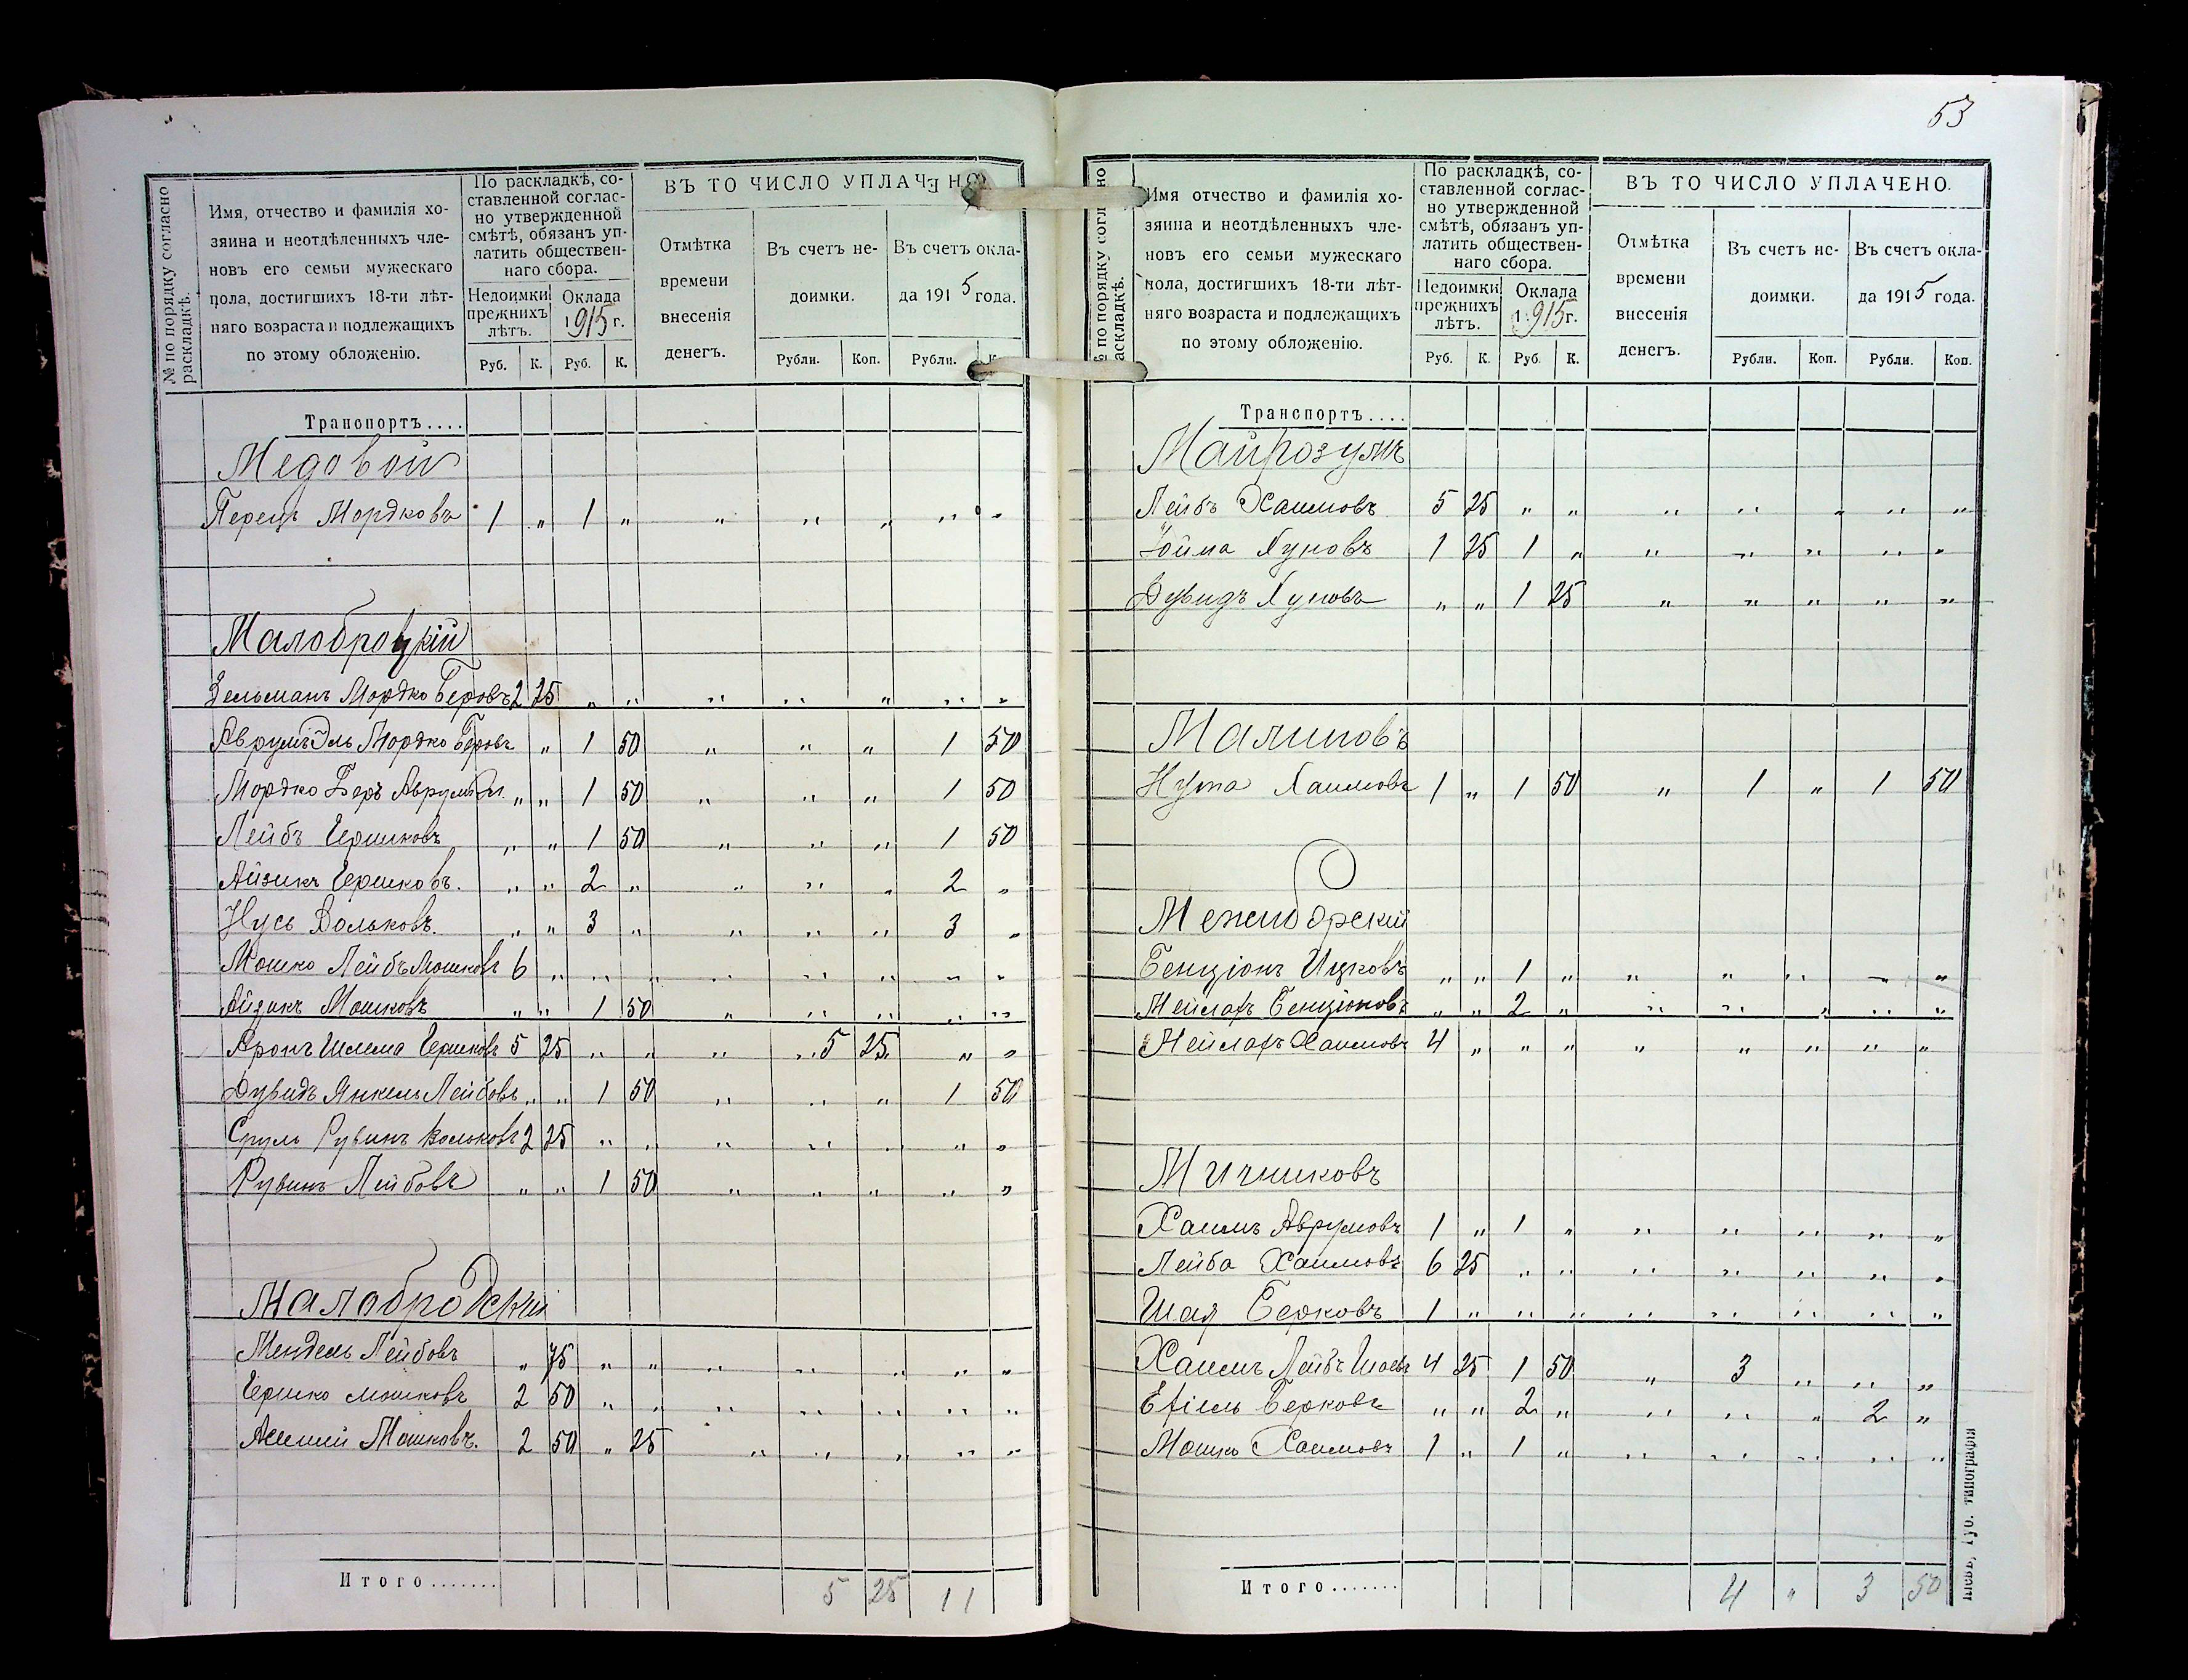 53
№ по порядку согласно
раскладкѣ.
Имя, отчество и фамилія хо-
зяина и неотдѣленныхъ чле-
новъ его семьи мужескаго
пола, достигшихъ 18-ти лѣт-
няго возраста и подлежащихъ
по этому обложенію.
По раскладкѣ, со-
ставленной соглас-
но утвержденной
смѣтѣ, обязанъ уп-
латить обществен-
наго сбора.
Недоимки
прежнихъ
лѣтъ.
Оклада
1915 г.
Руб. К. Руб. К.
ВЪ ТО ЧИСЛО УПЛАЧЕНО
Отмѣтка
времени
внесенія
денегъ.
Въ счетъ не-
доимки.
Въ счетъ окла-
да 1915 года.
Рубли. Коп. Рубли. К
Транспортъ....
Медовой
Перецъ Мордковъ 1 „ 1 „ „ „ „ „ „
Малоброцкій
Зельманъ Мордко Беровъ 2 25 „ „ „ „ „ „ „
Аврумъ Эль Мордко Беровъ „ 1 50 „ „ „ 1 50
Мордко Беръ Аврумъ Эл. „ „ 1 50 „ „ „ 1 50
Лейбъ Гершковъ „ „ 1 50 „ „ „ 1 50
Айзикъ Гершковъ. „ „ 2 „ „ „ „ 2 „
Нусь Вольковъ. „ „ 3 „ „ „ „ 3 „
Мошко Лейбъ Мошковъ 6 „ „ „ „ „ „ „ „
Айзикъ Мошковъ „ „ 1 50 „ „ „ „ „
Аронъ Шлема Гершковъ 5 25 „ „ „ „ 5 25 „ „
Дувидъ Янкель Лейбовъ „ „ 1 50 „ „ „ 1 50
Сруль Рувинъ Вольковъ 2 25 „ „ „ „ „ „ „
Рувинъ Лейбовъ „ „ 1 50 „ „ „ „ „
Малобродскій
Мендель Лейбовъ „ 75 „ „ „ „ „ „ „
Гершко Мошковъ 2 50 „ „ „ „ „ „ „
Мошковъ. 2 50 „ 25 „ „ „ „ „
Итого....... 5 25 11
№ по порядку согласно
раскладкѣ.
Имя отчество и фамилія хо-
зяина и неотдѣленныхъ чле-
новъ его семьи мужескаго
пола, достигшихъ 18-ти лѣт-
няго возраста и подлежащихъ
по этому обложенію.
По раскладкѣ, со-
ставленной соглас-
но утвержденной
смѣтѣ, обязанъ уп-
латить обществен-
наго сбора.
Недоимки
прежнихъ
лѣтъ.
Оклада
1915 г.
Руб. К. Руб. К.
ВЪ ТО ЧИСЛО УПЛАЧЕНО.
Отмѣтка
времени
внесенія
денегъ.
Въ счетъ не-
доимки.
Въ счетъ окла-
да 1915 года.
Рубли. Коп. Рубли. Коп.
Транспортъ....
Майрозумъ
Лейбъ Хаимовъ 5 25 „ „ „ „ „ „ „
Хуновъ 1 25 1 „ „ „ „ „ „
Дувидъ Хуновъ „ „ 1 25 „ „ „ „ „
Малиновъ
Нута Хаимовъ 1 „ 1 50 „ 1 „ 1 50
Межиборскій
Бенціонъ Ицковъ „ „ 1 „ „ „ „ „ „
Мейлахъ Бенціоновъ „ „ 2 „ „ „ „ „ „
Мейлахъ Хаимовъ 4 „ „ „ „ „ „ „ „
Мичниковъ
Хаимъ Аврумовъ 1 „ 1 „ „ „ „ „ „
Лейба Хаимовъ 6 25 „ „ „ „ „ „ „
Шая Берковъ 1 „ „ „ „ „ „ „ „
Хаимъ Лейбъ Шоевъ 4 25 1 50 „ 3 „ „ „
Ехіель Берковъ „ „ 2 „ „ „ „ 2 „
Мошко Хаимовъ 1 „ 1 „ „ „ „ „ „
Итого....... 4 „ 3 50
Кіевъ, Губ. типографія